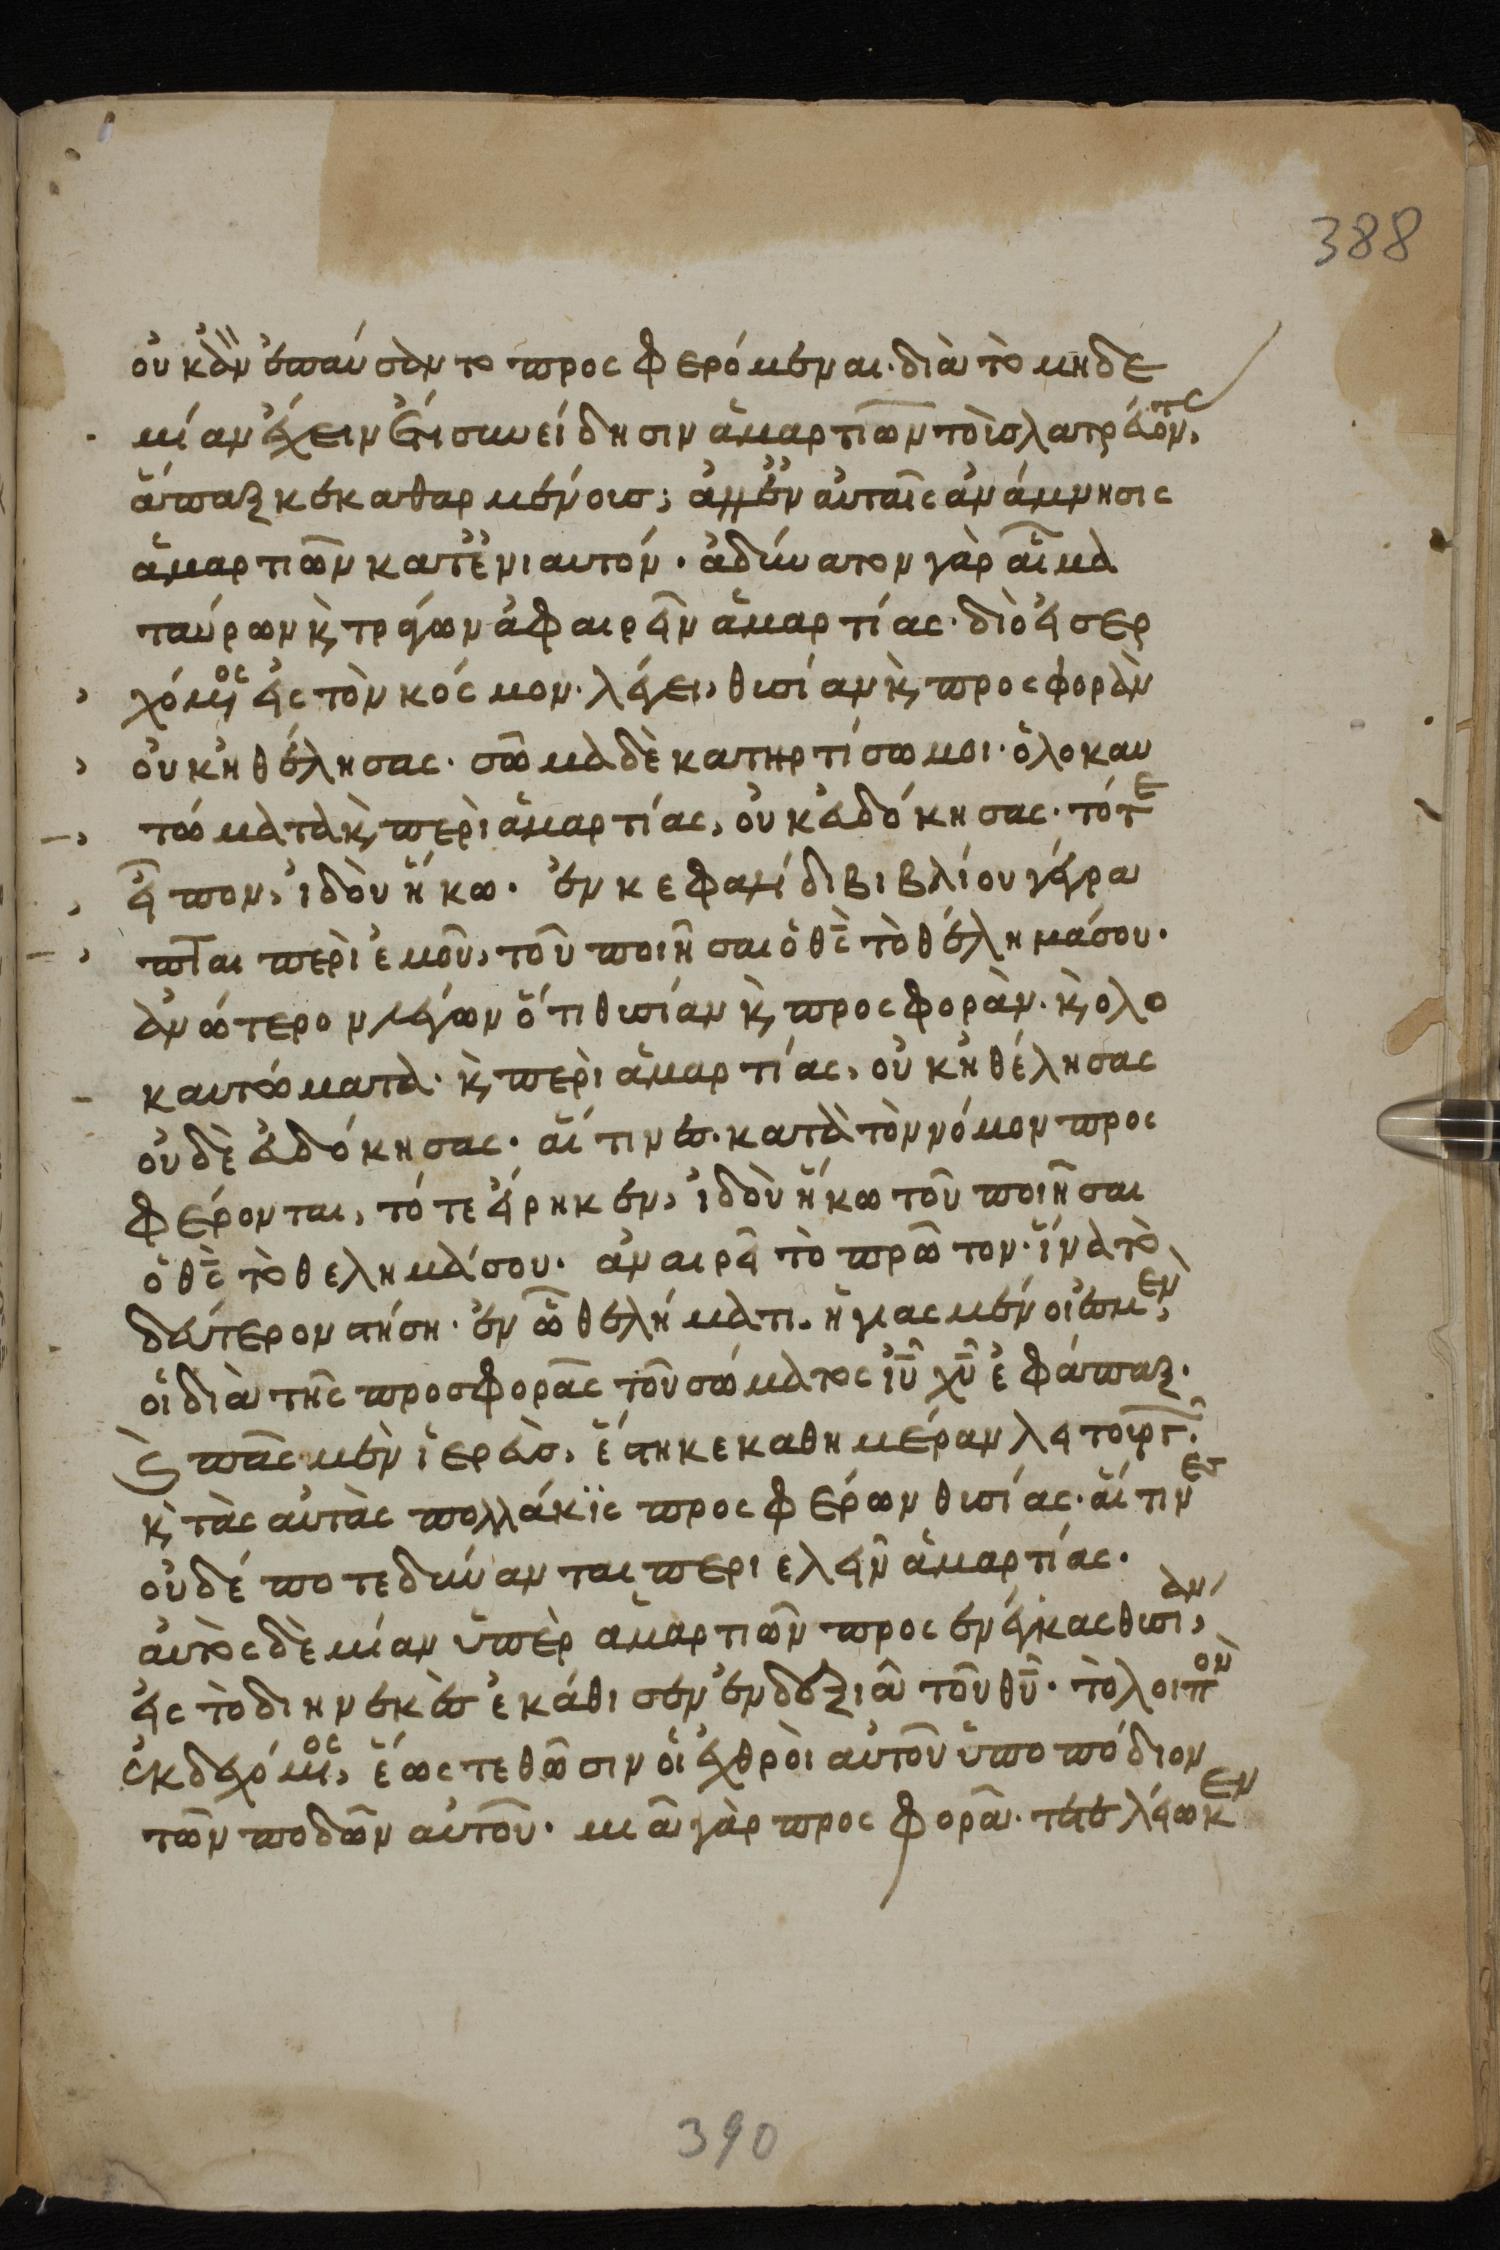 388
οὐκ ἂν ἐπαύσαντο προσφερόμεναι· διὰ τὸ μηδε
μίαν ἔχειν ἔτι συνείδησιν ἁμαρτιῶν τοὺς λατρεύοντας,
ἅπαξ κεκαθαρμένους; ἀλλ' ἐν αὐταῖς ἀνάμνησις
ἁμαρτιῶν κατ' ἐνιαυτόν· ἀδύνατον γὰρ αἷμα
ταύρων κ̀ τράγων ἀφαιρεῖν ἁμαρτίας· διὸ εἰσερ
χόμενος εἰς τὸν κόσμον· λέγει, θυσίαν κ̀ προσφορὰν
οὐκ ἠθέλησας· σῶμα δὲ κατηρτίσω μοι· ὁλοκαυ
τώματα κ̀ περὶ ἁμαρτίας, οὐκ εὐδόκησας· τότε
εἶπον, ἰδοὺ ἥκω· ἐν κεφαλίδι βιβλίου γέγρα
πται περὶ ἐμοῦ, τοῦ ποιῆσαι ὁ θς̄ τὸ θέλημά σου·
ἀνώτερον λέγων ὅτι θυσίαν κ̀ προσφορὰν· κ̀ ολο
καυτώματα· κ̀ περὶ ἁμαρτίας, οὐκ ἠθέλησας
οὐδὲ εὐδόκησας· αἵτινες· κατὰ τὸν νόμον προς
φέρονται, τότε εἴρηκεν, ἰδοὺ ἥκω τοῦ ποιῆσαι
ὁ θς̄ τὸ θελημά σου· ἀναιρεῖ τὸ πρῶτον· ἵνα τὸ
δεύτερον στήσῃ· ἐν ᾧ θελήματι· ἡγιασμένοι ἐσμεν,
οἱ διὰ τῆς προσφορᾶς τοῦ σώματος ιῡ χῡ ἐφάπαξ·
Κ̀ πᾶς μὲν ἱερεὺς, ἕστηκε καθημέραν λειτουργῶν·
κ̀ τὰς αὐτὰς πολλάκϊς προσφέρων θυσίας· αἵτινες
οὐδέποτε δύνανται περιελεῖν ἁμαρτίας·
αὐτὸς δὲ μίαν ὑπὲρ ἁμαρτιῶν προσενέγκας θυσίαν,
εἰς τὸ διηνεκὲς ἐκάθισεν ἐν δεξιᾷ τοῦ θῡ· τὸ λοιπὸν
ἐκδεχόμενος, ἕως τεθῶσιν οἱ ἐχθροὶ αὐτοῦ ὑποπόδιον
τῶν ποδῶν αὐτοῦ· μιᾷ γὰρ προσφορᾷ· τετελείωκεν
390